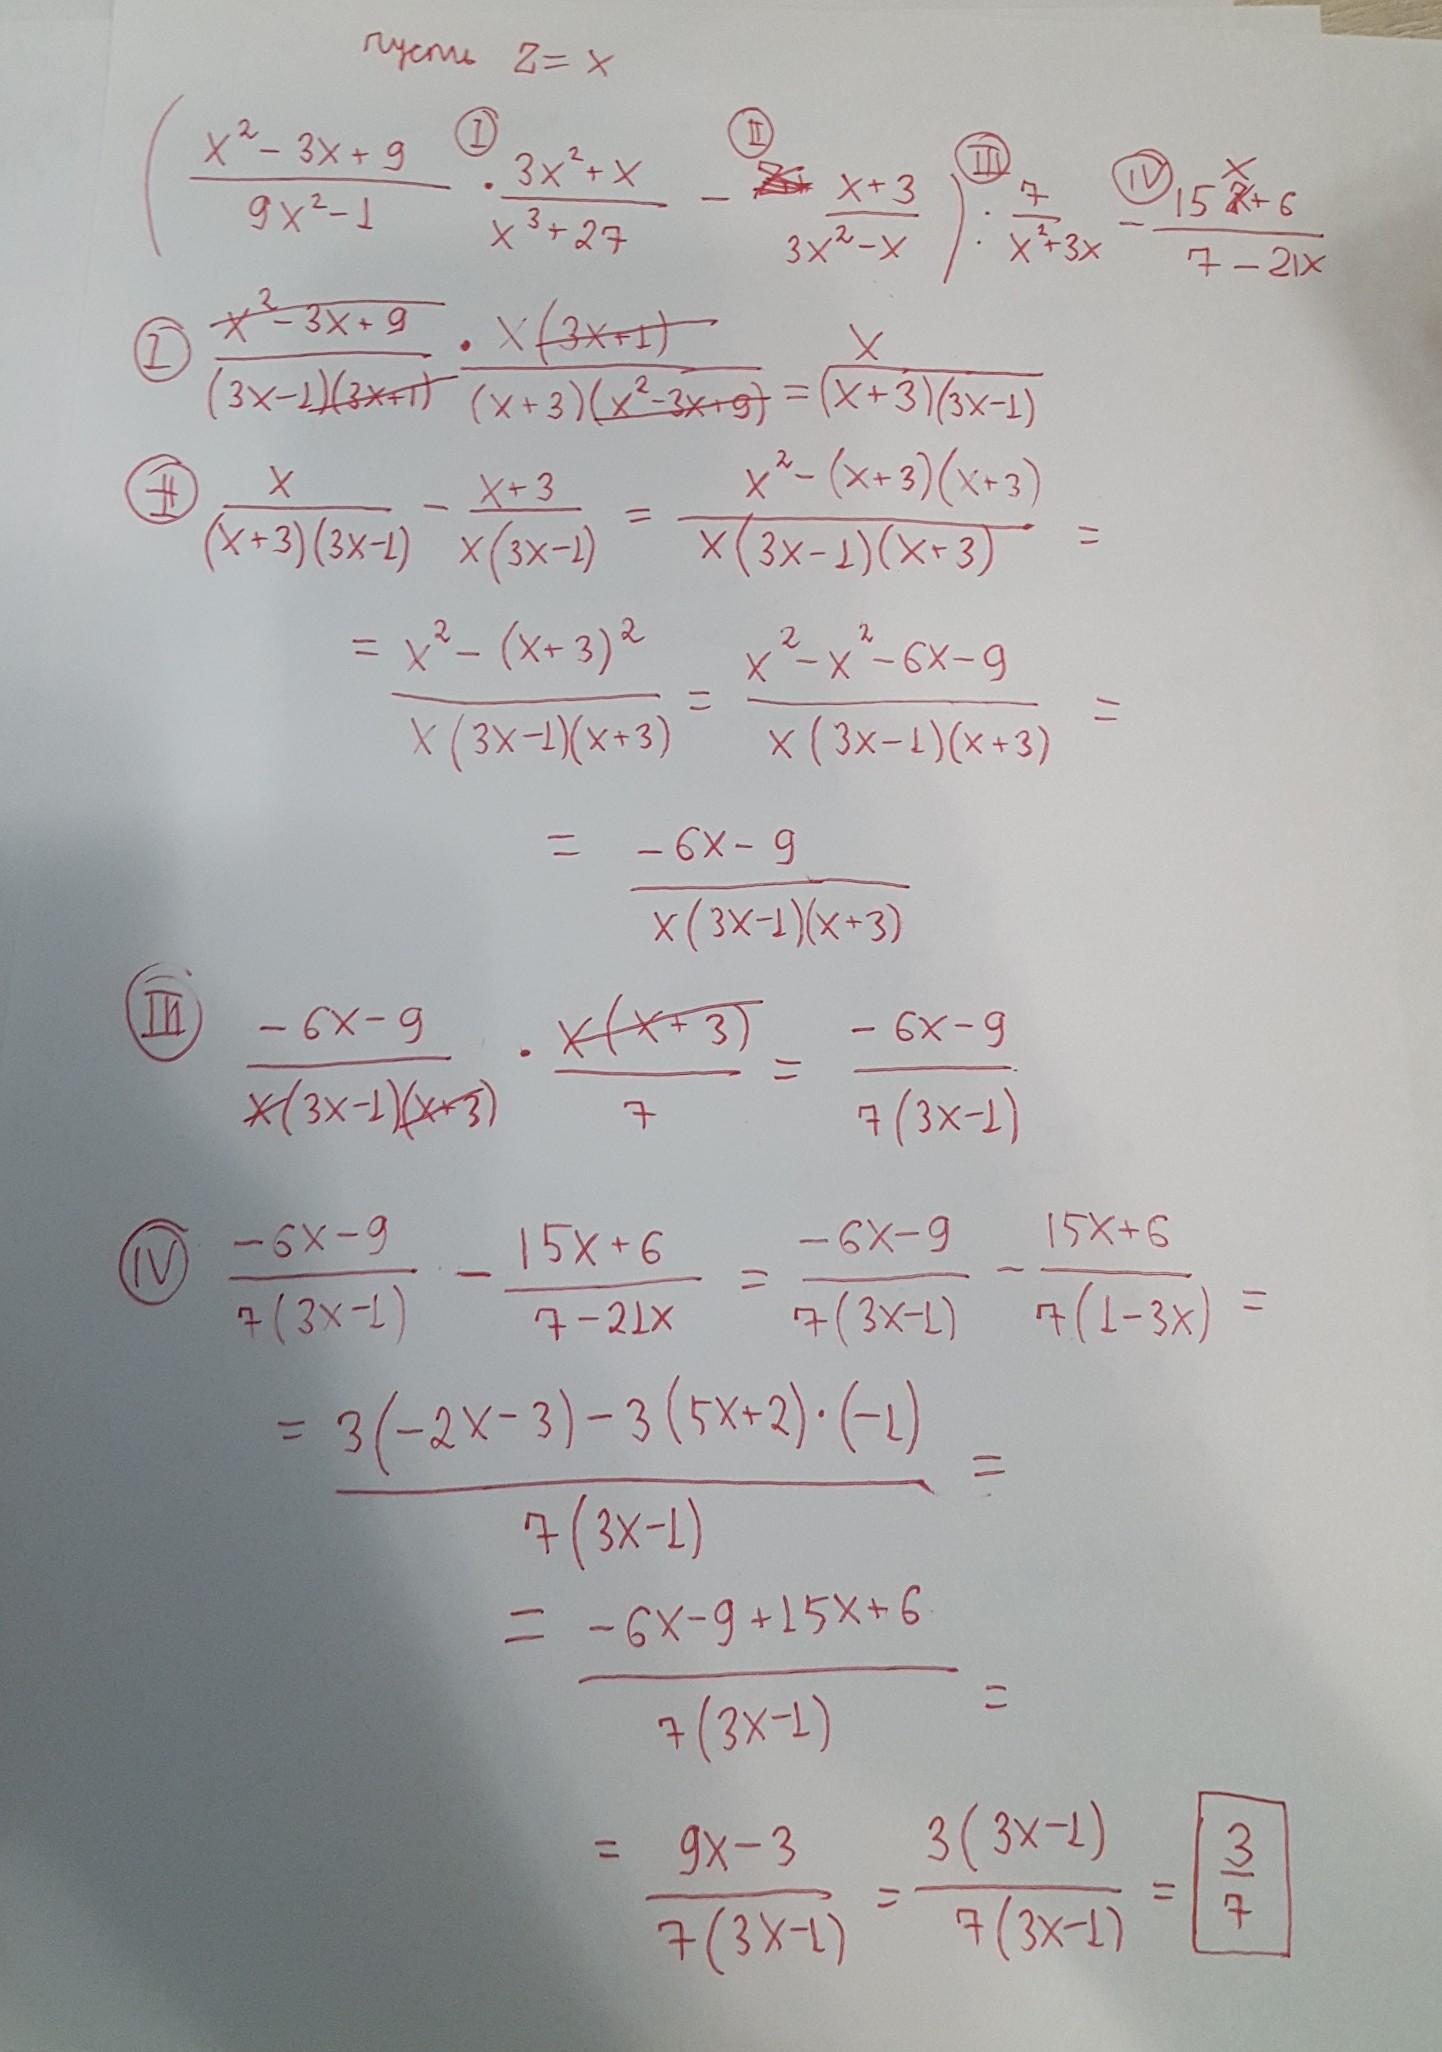 пусть z = x
( (x² - 3x + 9)/(9x² - 1) Ⓘ · (3x² + x)/(x³ + 27) Ⓘⓘ - (x + 3)/(3x² - x) ) Ⓘⓘⓘ : 7/(x² + 3x) Ⓘⓥ - (15x + 6)/(7 - 21x)
Ⓘ (x² - 3x + 9)/((3x - 1)(3x + 1)) · x(3x + 1)/((x + 3)(x² - 3x + 9)) = x/((x + 3)(3x - 1))
II x/((x + 3)(3x - 1)) - (x + 3)/(x(3x - 1)) = (x² - (x + 3)(x + 3))/(x(3x - 1)(x + 3)) =
= (x² - (x + 3)²)/(x(3x - 1)(x + 3)) = (x² - x² - 6x - 9)/(x(3x - 1)(x + 3)) =
= (-6x - 9)/(x(3x - 1)(x + 3))
III (-6x - 9)/(x(3x - 1)(x + 3)) · x(x + 3)/7 = (-6x - 9)/(7(3x - 1))
IV (-6x - 9)/(7(3x - 1)) - (15x + 6)/(7 - 21x) = (-6x - 9)/(7(3x - 1)) - (15x + 6)/(7(1 - 3x)) =
= (3(-2x - 3) - 3(5x + 2) · (-1))/(7(3x - 1)) =
= (-6x - 9 + 15x + 6)/(7(3x - 1)) =
= (9x - 3)/(7(3x - 1)) = 3(3x - 1)/(7(3x - 1)) = 3/7